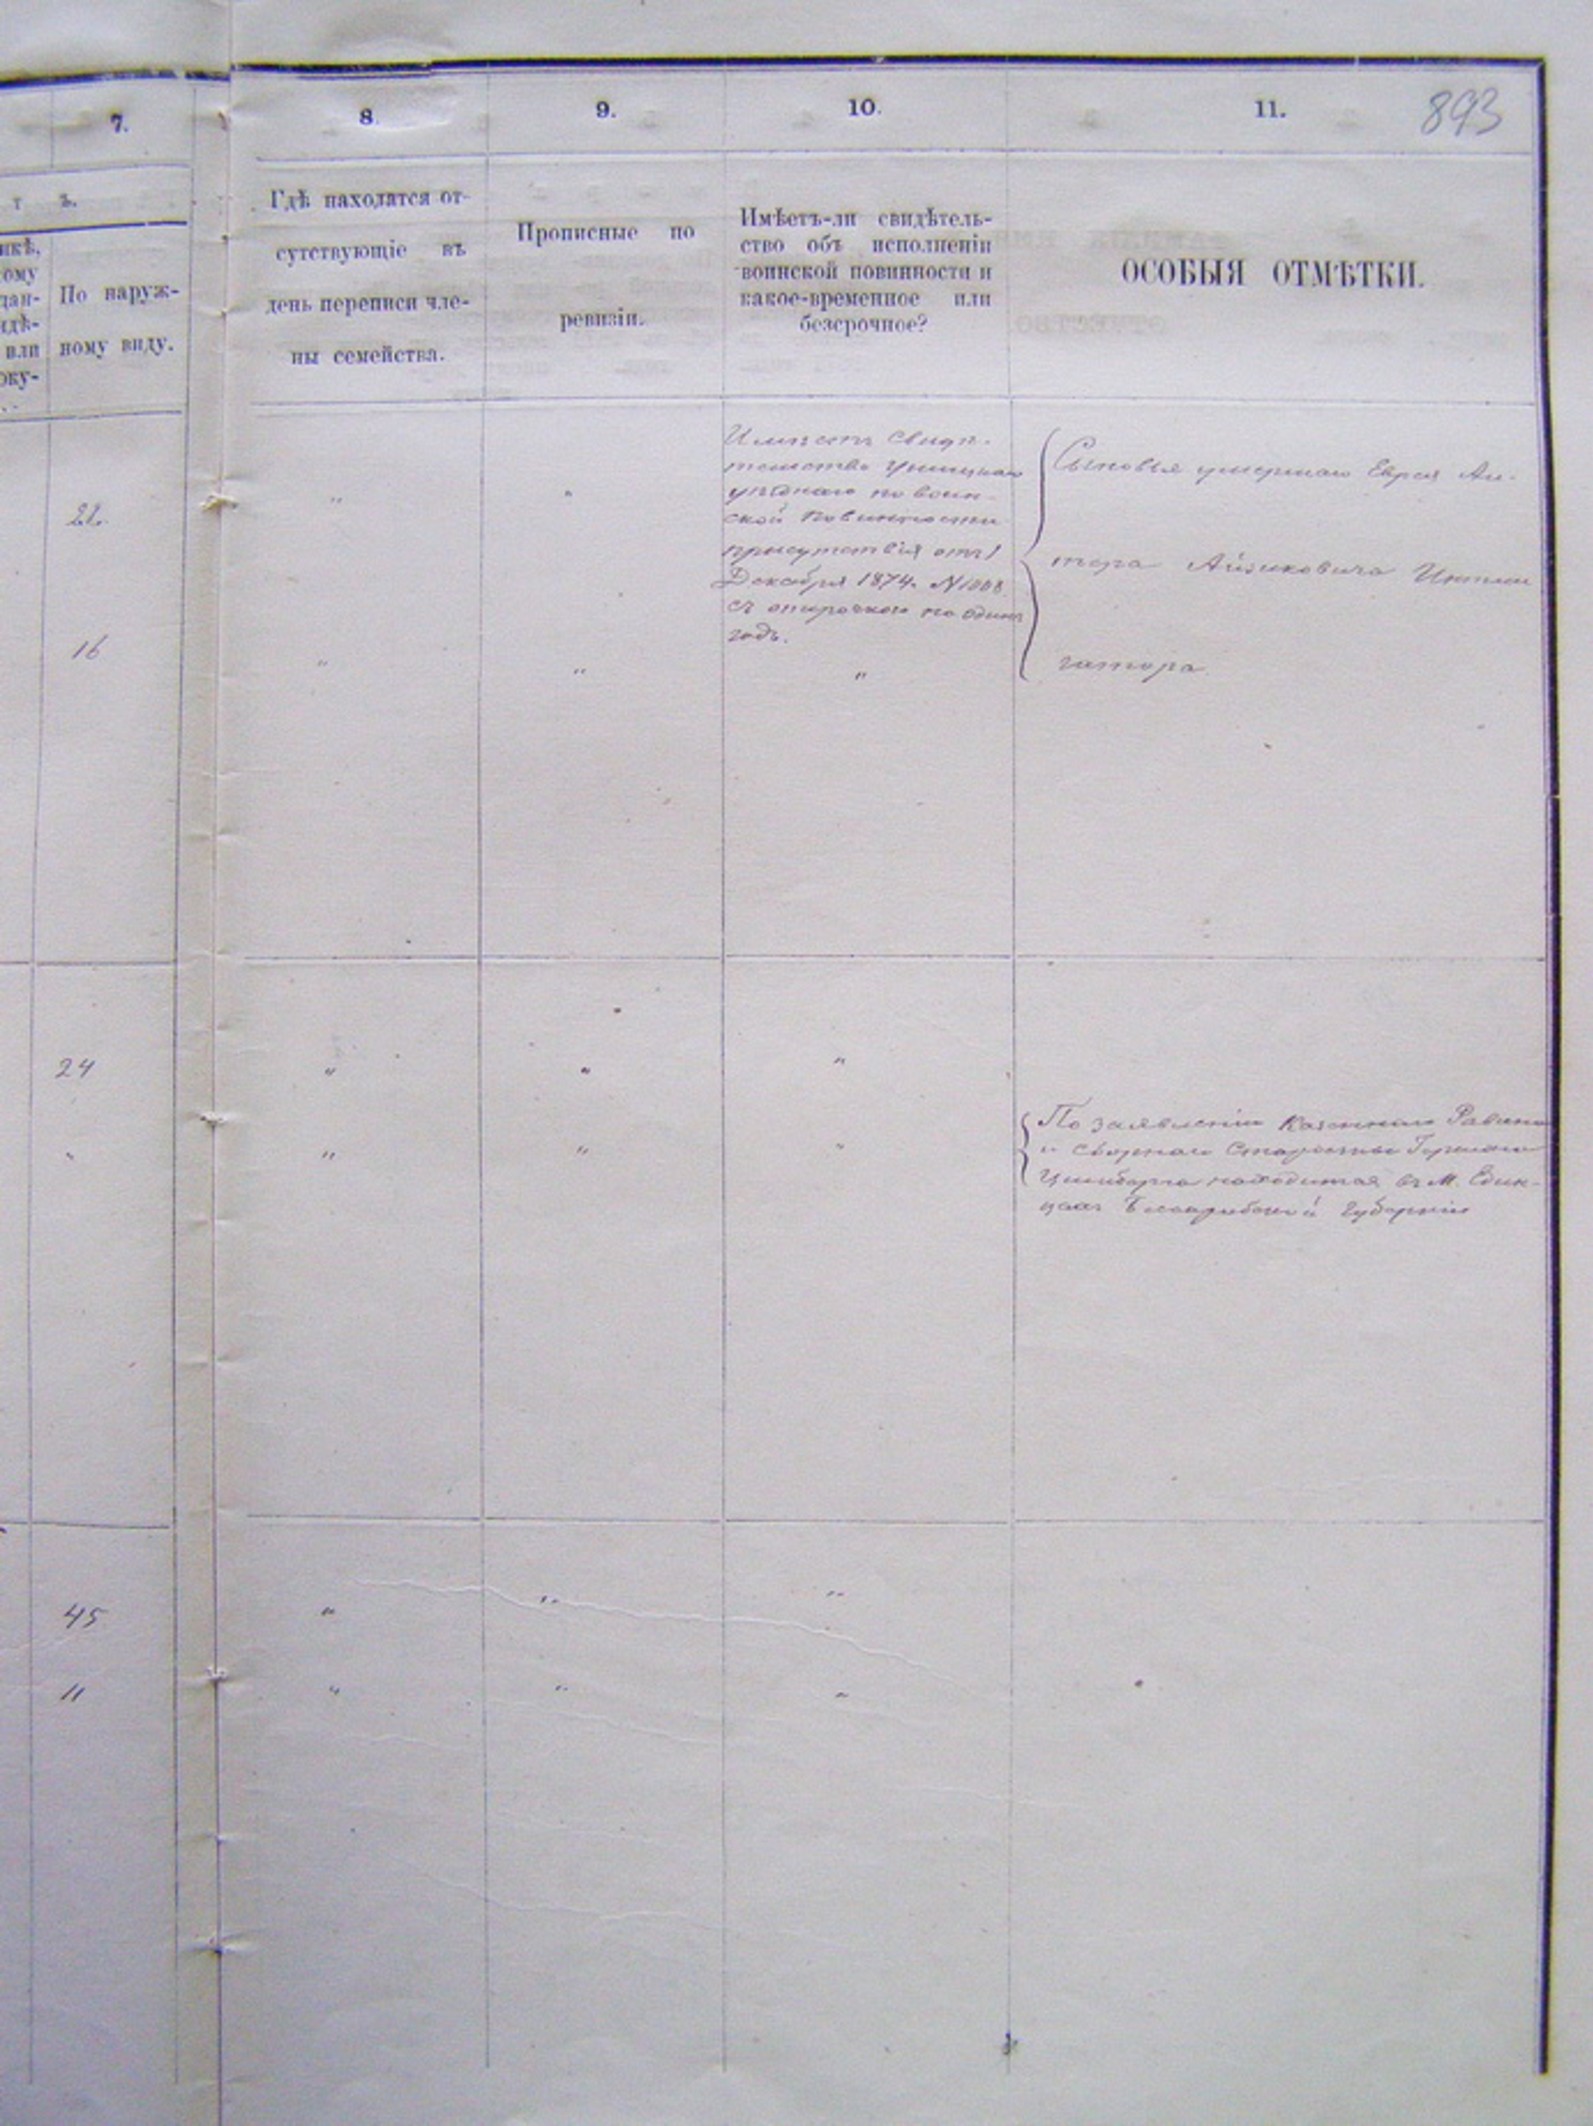 7.
8.
9.
10.
11.
893
т ъ.
икѣ,
кому
дан-
идѣ-
или
оку-
По наруж-
ному виду.
Гдѣ находятся от-
сутствующіе въ
день переписи чле-
ны семейства.
Прописные по
ревизіи.
Имѣетъ-ли свидѣтель-
ство объ исполненіи
воинской повинности и
какое-временное или
безсрочное?
ОСОБЫЯ ОТМѢТКИ.
22.
"
"
Имѣетъ Свидѣ-
тельство
уѣзднаго по воин-
ской повинности
присутствія отъ 1
Декабря 1874. N 1008
съ отсрочкою на одинъ
годъ.
Сыновья умершаго Еврея Ан-
тера Айзиковича
гатора
16
"
"
"
24
"
"
"
"
"
"
"
По заявленію Казеннаго Равина
и Сборнаго Старосты Германа
находится въ М. Един-
цахъ Бессарабской Губерніи
45
"
"
"
11
"
"
"